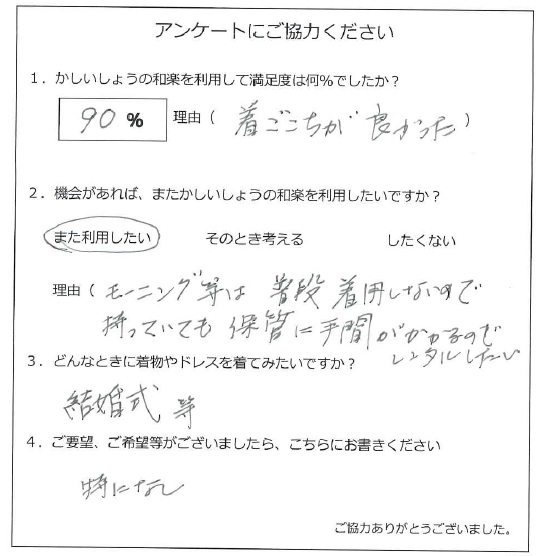 アンケートにご協力ください
1．かしいしょうの和楽を利用して満足度は何％でしたか？
90 ％ 理由（ 着ごこちが 良かった ）
2．機会があれば、またかしいしょうの和楽を利用したいですか？
また利用したい そのとき考える したくない
理由（ モーニング等は 普段 着用しないので
持っていても 保管に手間がかかるので
レンタルしたい
3．どんなときに着物やドレスを着てみたいですか？
結婚式 等
4．ご要望、ご希望等がございましたら、こちらにお書きください
特になし
ご協力ありがとうございました。